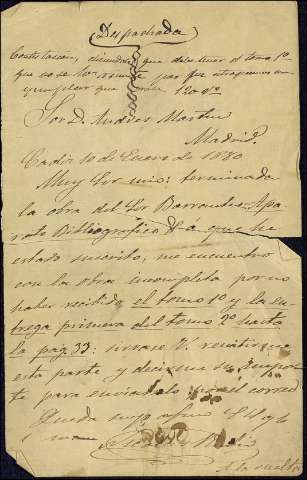 Despachada
Contestacion, diciendole que debe tener el tomo 1º
que no se
ejemplar que 120 rs
Sor D. Andres Martin
Madrid.
Cadiz 10 de Enero de 1880
Muy Sor mio: terminada
la obra del Sor Barrantes, Apa-
rato Bibliografico &ª á que he
estado suscrito, me encuentro
con la obra incompleta por no
haber recibido el tomo 1º y la en-
trega primera del tomo 2º hasta
la pag. 33: sirvase V. remitirme
esta parte y decirme su impor-
te para enviarselo por el correo
Queda suyo afmo S S q b
s m
A la vuelta